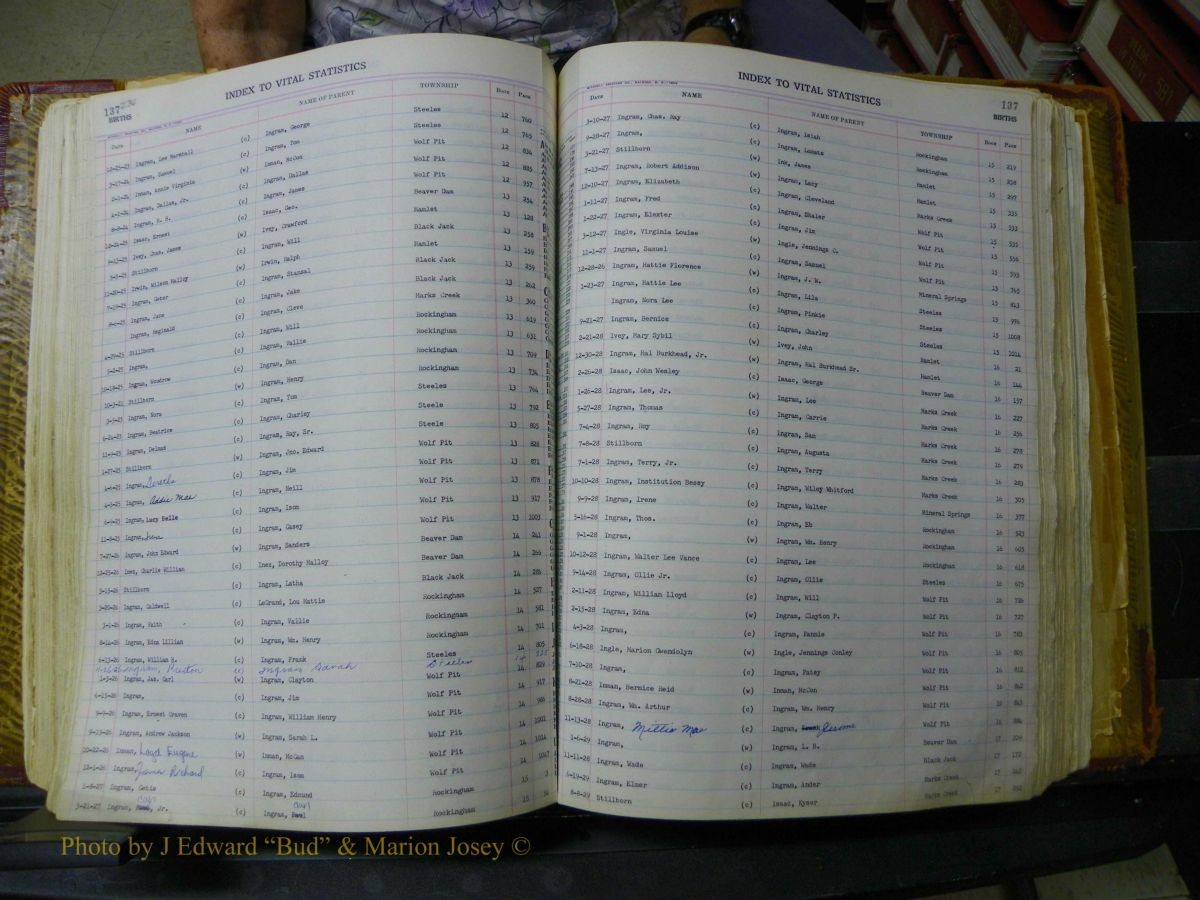 137 236
BIRTHS
INDEX TO VITAL STATISTICS
Date NAME NAME OF PARENT TOWNSHIP Book Page
12-25-23 Ingram, Lee Marshall (c) Ingram, George Steeles 12 760
3-17-24 Ingram, Samuel (c) Ingram, Tom Steeles 12 765
2-1-24 Inman, Annie Virginia (w) Inman, McCon Wolf Pit 12 834
4-1-24 Ingram, Dallas, Jr. (c) Ingram, Dallas Wolf Pit 12 885
8-8-24 Ingram, R. B. (c) Ingram, James Wolf Pit 12 937
12-24-25 Isaac, Ernest (c) Isaac, Geo. Beaver Dam 13 254
Ivey, Chas. James (w) Ivey, Crawford Hamlet 13 128
Stillborn (c) Ingram, Will Black Jack 13 258
11-20-25 Irwin, Wilson Malloy (w) Irwin, Ralph Hamlet 13 159
7-19-25 Ingram, Geter (c) Ingram, Stansal Black Jack 13 259
Ingram, Jane (c) Ingram, Jake Black Jack 13 262
Ingram, Reginald (c) Ingram, Cleve Marks Creek 13 360
4-29-25 Stillborn (c) Ingram, Will Rockingham 13 619
Ingram, (c) Ingram, Vallie Rockingham 13 631
10-18-25 Ingram, Woodrow (c) Ingram, Dan Rockingham 13 709
Stillborn (w) Ingram, Henry Rockingham 13 734
3-9-25 Ingram, Nora (c) Ingram, Tom Steeles 13 764
6-24-25 Ingram, Beatrice (c) Ingram, Charley Steele 13 792
Ingram, Delmas (c) Ingram, Ray, Sr. Steele 13 805
1-27-25 Stillborn (w) Ingram, Jno. Edward Wolf Pit 13 828
4-6-25 Ingram, (c) Ingram, Jim Wolf Pit 13 871
4-3-25 Ingram, Addie Mae (c) Ingram, Neill Wolf Pit 13 878
6-9-25 Ingram, Lucy Belle (c) Ingram, Ison Wolf Pit 13 917
11-8-25 Ingram, (c) Ingram, Casey Wolf Pit 13 1003
7-27-26 Ingram, John Edward (w) Ingram, Sanders Beaver Dam 14 241
12-25-26 Inez, Charlie William Inez, Dorothy Malloy Beaver Dam 14 266
Stillborn (c) Ingram, Latha Black Jack 14 286
3-20-26 Ingram, Caldwell (c) LeGrand, Lou Mattie Rockingham 14 527
3-1-26 Ingram, Faith (c) Ingram, Vallie Rockingham 14 581
8-14-26 Ingram, Edna Lillian (w) Ingram, Wm. Henry Rockingham 14 701
6-13-26 Ingram, William H. (c) Ingram, Frank Steeles 14 805
11-26-26 Ingram, Preston (c) Ingram Sarah Steeles 14
Ingram, Jas. Carl (w) Ingram, Clayton Wolf Pit 14 829
6-15-26 Ingram, (c) Ingram, Jim Wolf Pit 14 917
9-9-26 Ingram, Ernest Craven (c) Ingram, William Henry Wolf Pit 14 986
Ingram, Andrew Jackson (w) Ingram, Sarah L. Wolf Pit 14 1001
10-22-26 Inman, Loyd Eugene (w) Inman, McCan Wolf Pit 14 1014
12-1-26 Ingram, James Richard (c) Ingram, Ison Wolf Pit 14 1047
1-8-27 Ingram, Catie (c) Ingram, Edmund Rockingham 15 3
3-21-27 Ingram, Jr. (c) Ingram, Rockingham 15
INDEX TO VITAL STATISTICS
137
BIRTHS
Date NAME NAME OF PARENT TOWNSHIP Book Page
3-10-27 Ingram, Chas. Ray (c) Ingram, Isiah Rockingham 15 219
9-28-27 Ingram, (c) Ingram, Lomats Rockingham 15 258
3-21-27 Stillborn (w) Ink, James Hamlet 15 297
7-13-27 Ingram, Robert Addison (w) Ingram, Lacy Hamlet 15 335
12-10-27 Ingram, Elizabeth (c) Ingram, Cleveland Marks Creek 15 333
1-11-27 Ingram, Fred (c) Ingram, Shaler Wolf Pit 15 535
1-22-27 Ingram, Elexter (c) Ingram, Jim Wolf Pit 15 556
3-12-27 Ingle, Virginia Louise (w) Ingle, Jennings C. Wolf Pit 15 593
11-1-27 Ingram, Samuel (c) Ingram, Samuel Wolf Pit 15 765
12-28-26 Ingram, Hattie Florence (w) Ingram, J. W. Mineral Springs 15 813
1-23-27 Ingram, Hattie Lee (c) Ingram, Lila Steeles 15 976
Ingram, Nora Lee (c) Ingram, Pinkie Steeles 15 1008
9-21-27 Ingram, Bernice (c) Ingram, Charley Steeles 15 1014
2-21-28 Ivey, Mary Sybil (w) Ivey, John Hamlet 16 21
12-30-28 Ingram, Hal Burkhead, Jr. (w) Ingram, Hal Burkhead Sr. Hamlet 16 144
2-26-28 Isaac, John Wesley (c) Isaac, George Beaver Dam 16 157
1-26-28 Ingram, Lee, Jr. (w) Ingram, Lee Marks Creek 16 227
5-27-28 Ingram, Thomas (c) Ingram, Carrie Marks Creek 16 256
7-4-28 Ingram, Roy (c) Ingram, Dan Marks Creek 16 278
7-8-28 Stillborn (c) Ingram, Augusta Marks Creek 16 279
7-1-28 Ingram, Terry, Jr. (c) Ingram, Terry Marks Creek 16 283
10-10-28 Ingram, Institution Bessy (c) Ingram, Wiley Whitford Marks Creek 16 305
9-9-28 Ingram, Irene (c) Ingram, Walter Mineral Springs 16 377
5-16-28 Ingram, Thos. (c) Ingram, Eb Rockingham 16 523
9-1-28 Ingram, (w) Ingram, Wm. Henry Rockingham 16 605
10-12-28 Ingram, Walter Lee Vance (c) Ingram, Lee Rockingham 16 618
9-14-28 Ingram, Ollie Jr. (c) Ingram, Ollie Steeles 16 675
2-11-28 Ingram, William Lloyd (c) Ingram, Will Wolf Pit 16 726
2-13-28 Ingram, Edna (w) Ingram, Clayton P. Wolf Pit 16 727
4-3-28 Ingram, (c) Ingram, Fannie Wolf Pit 16 763
6-18-28 Ingle, Marion Gwendolyn (w) Ingle, Jennings Conley Wolf Pit 16 805
7-10-28 Ingram, (c) Ingram, Patsy Wolf Pit 16 812
8-21-28 Inman, Bernice Reid (w) Inman, McCon Wolf Pit 16 842
8-28-28 Ingram, Wm. Arthur (c) Ingram, Wm. Henry Wolf Pit 16 843
11-13-28 Ingram, Millie Mae (c) Ingram, Jerome Wolf Pit 16 884
1-6-29 Ingram, (w) Ingram, L. H. Beaver Dam 17 109
11-11-28 Ingram, Wade (c) Ingram, Wade Black Jack 17 172
6-19-29 Ingram, Elmer (c) Ingram, Ander Marks Creek 17 242
8-8-29 Stillborn (c) Isaac, Kyser Marks Creek 17 252
Photo by J Edward "Bud" & Marion Josey ©